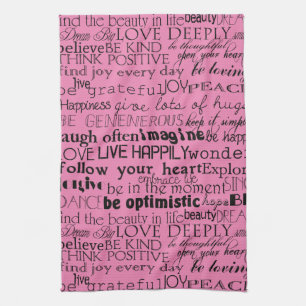 find the beauty in life beauty DREAM
Dream Big LOVE DEEPLY
believe BE KIND be thoughtful
THINK POSITIVE open your heart
find joy every day be loving
live
grateful JOY PEACE
Happiness give lots of hugs
BE GENENEROUS keep it simple
laugh often imagine be happy
LOVE LIVE HAPPILY wonder
follow your heart Explore
give embrace life
be in the moment SING
DANCE be optimistic hope
find the beauty in life beauty DREAM
Dream Big LOVE DEEPLY
believe BE KIND be thoughtful
THINK POSITIVE open your heart
find joy every day be loving
live
be grateful JOY PEACE